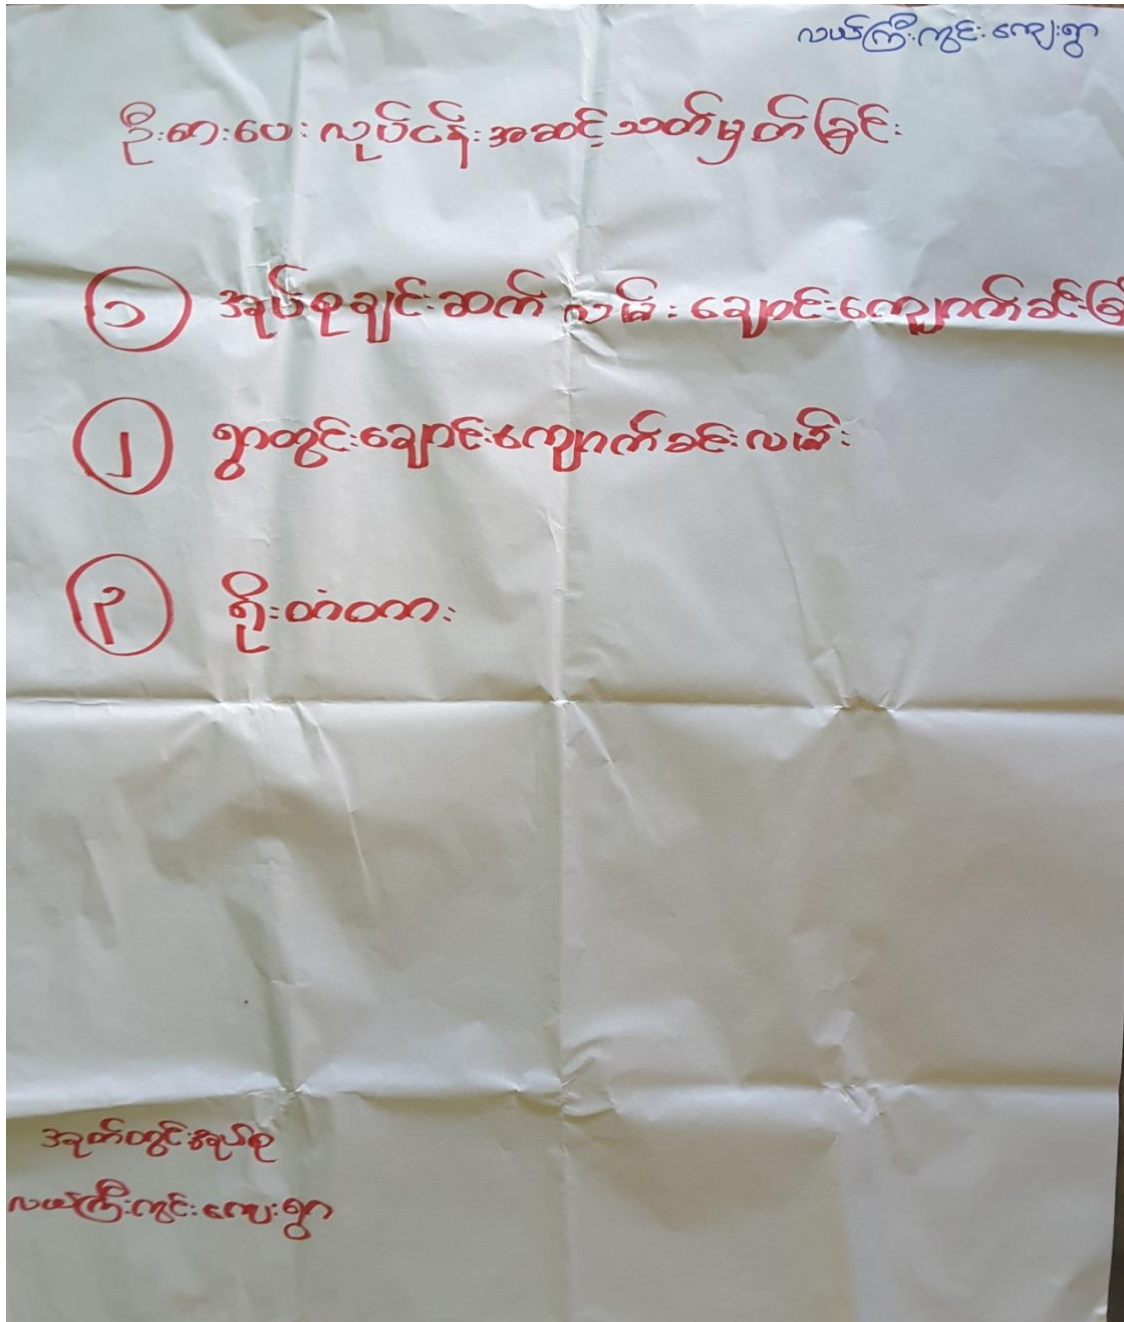 လယ်ကြီးကွင်းကျေးရွာ
ဦးစားပေးလုပ်ငန်းအဆင့်သတ်မှတ်ခြင်း
၁ အုပ်စုချင်းဆက်လမ်းချောင်းကျောက်ခင်းခြ
၂ ရွာတွင်းချောင်းကျောက်ခင်းလမ်း
၃ ရိုးတံတား
လယ်ကြီးကွင်းကျေးရွာ